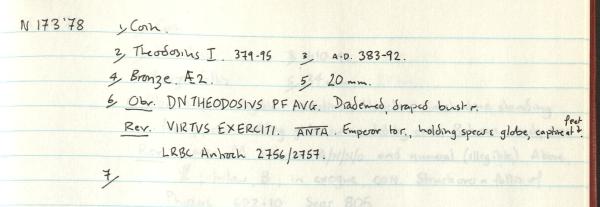 N 173'78 1, Coin.
2, Theodosius I. 379-95 3, A.D. 383-92.
4, Bronze. Æ2. 5, 20 mm.
6, Obv. DN THEODOSIUS PF AVG. Diademed, draped bust r.
Rev. VIRTVS EXERCITI. ANTA. Emperor to r., holding spear & globe, captive at feet
LRBC Antioch 2756/2757.
7,